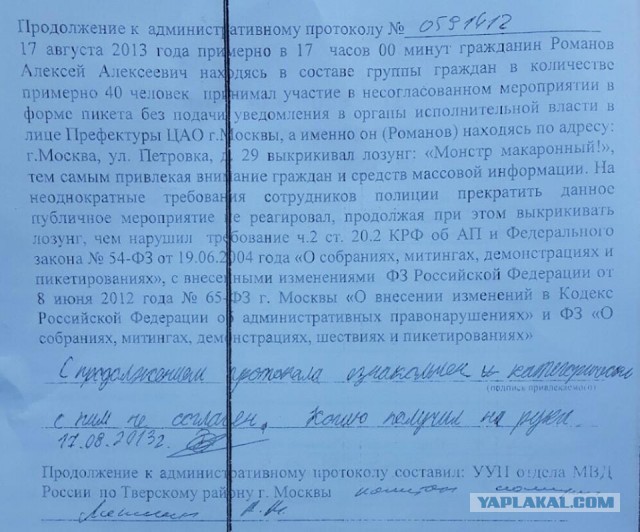 Продолжение к административному протоколу № 0591412
17 августа 2013 года примерно в 17 часов 00 минут гражданин Романов
Алексей Алексеевич находясь в составе группы граждан в количестве
примерно 40 человек принимал участие в несогласованном мероприятии в
форме пикета без подачи уведомления в органы исполнительной власти в
лице Префектуры ЦАО г.Москвы, а именно он (Романов) находясь по адресу:
г.Москва, ул. Петровка, д. 29 выкрикивал лозунг: «Монстр макаронный!»,
тем самым привлекая внимание граждан и средств массовой информации. На
неоднократные требования сотрудников полиции прекратить данное
публичное мероприятие не реагировал, продолжая при этом выкрикивать
лозунг, чем нарушил требование ч.2 ст. 20.2 КРФ об АП и Федерального
закона № 54-ФЗ от 19.06.2004 года «О собраниях, митингах, демонстрациях и
пикетированиях», с внесенными изменениями ФЗ Российской Федерации от
8 июня 2012 года № 65-ФЗ г. Москвы «О внесении изменений в Кодекс
Российской Федерации об административных правонарушениях» и ФЗ «О
собраниях, митингах, демонстрациях, шествиях и пикетированиях»
С продолжением протокола ознакомлен и категорически
(подпись привлекаемого)
с ним не согласен. Копию получил на руки.
17.08.2013г.
Продолжение к административному протоколу составил: УУП отдела МВД
России по Тверскому району г. Москвы капитан полиции
YAPLAKAL.COM